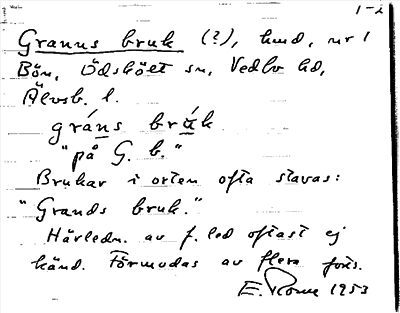 1-2
Granns bruk (?), hmd, nr 1
Bön, Ödsköelt sn, Vedbo hd,
Älvsb. l.
gráns brúk
"på G. b."
Brukar i orten ofta stavas:
"Grands bruk."
Härledn. av f. led oftast ej
känd. Förmodas av flera förs.
E. Rome 1953